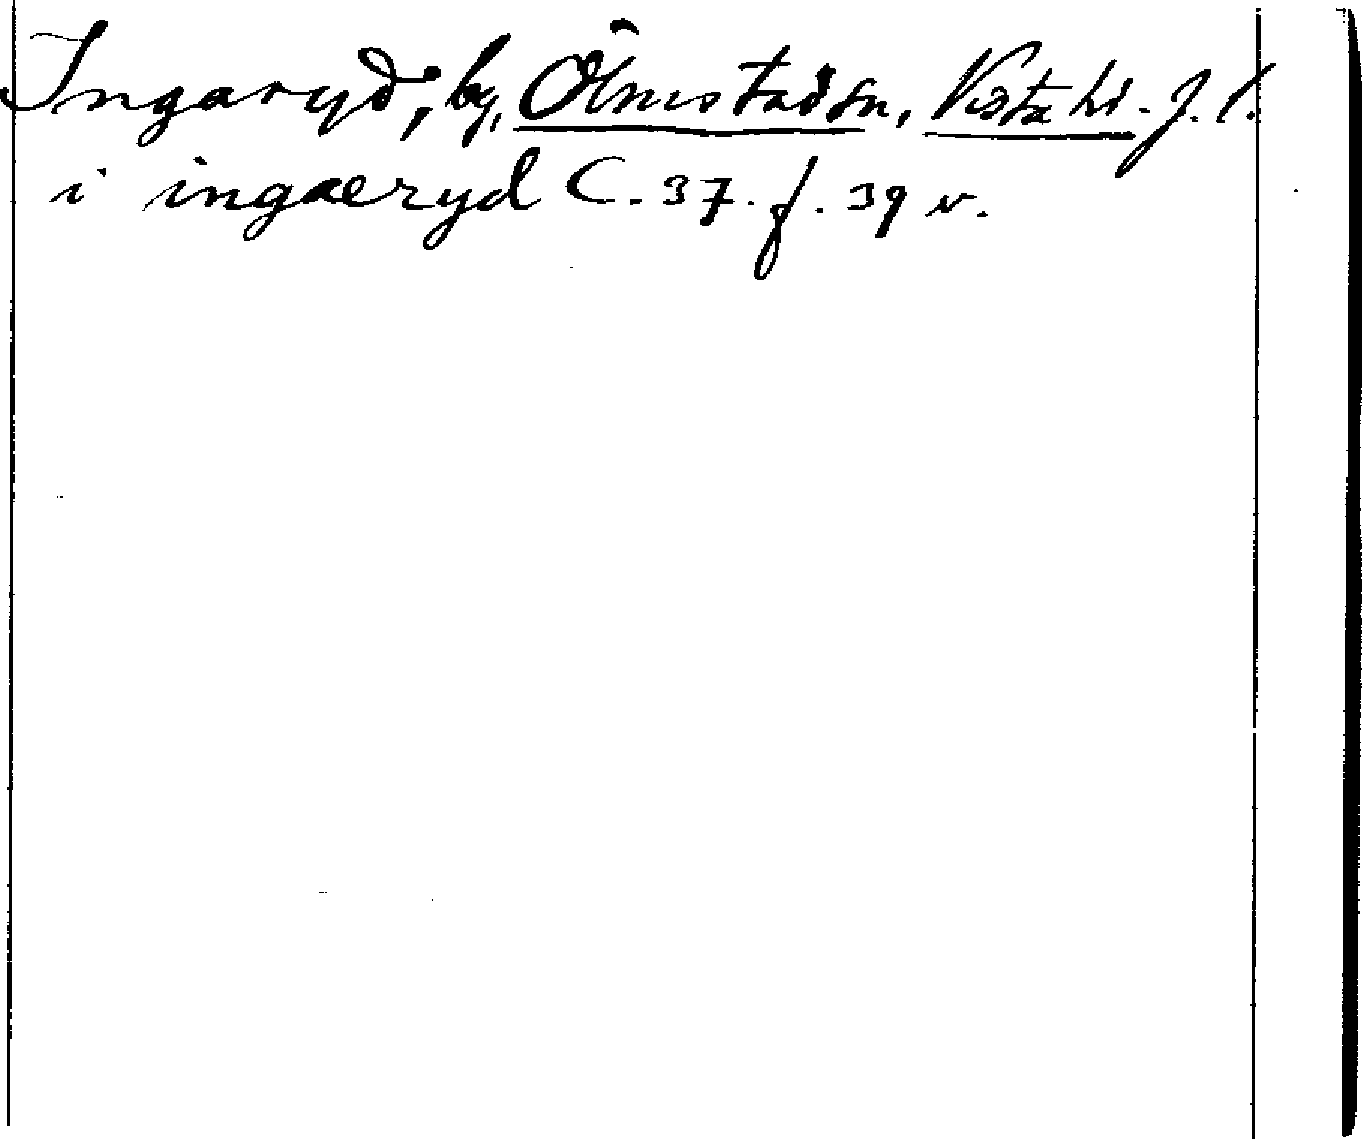 Ingaryd, by, Ölmstad sn, Vista hd. J. l.
i ingæryd C. 37. f. 39 v.